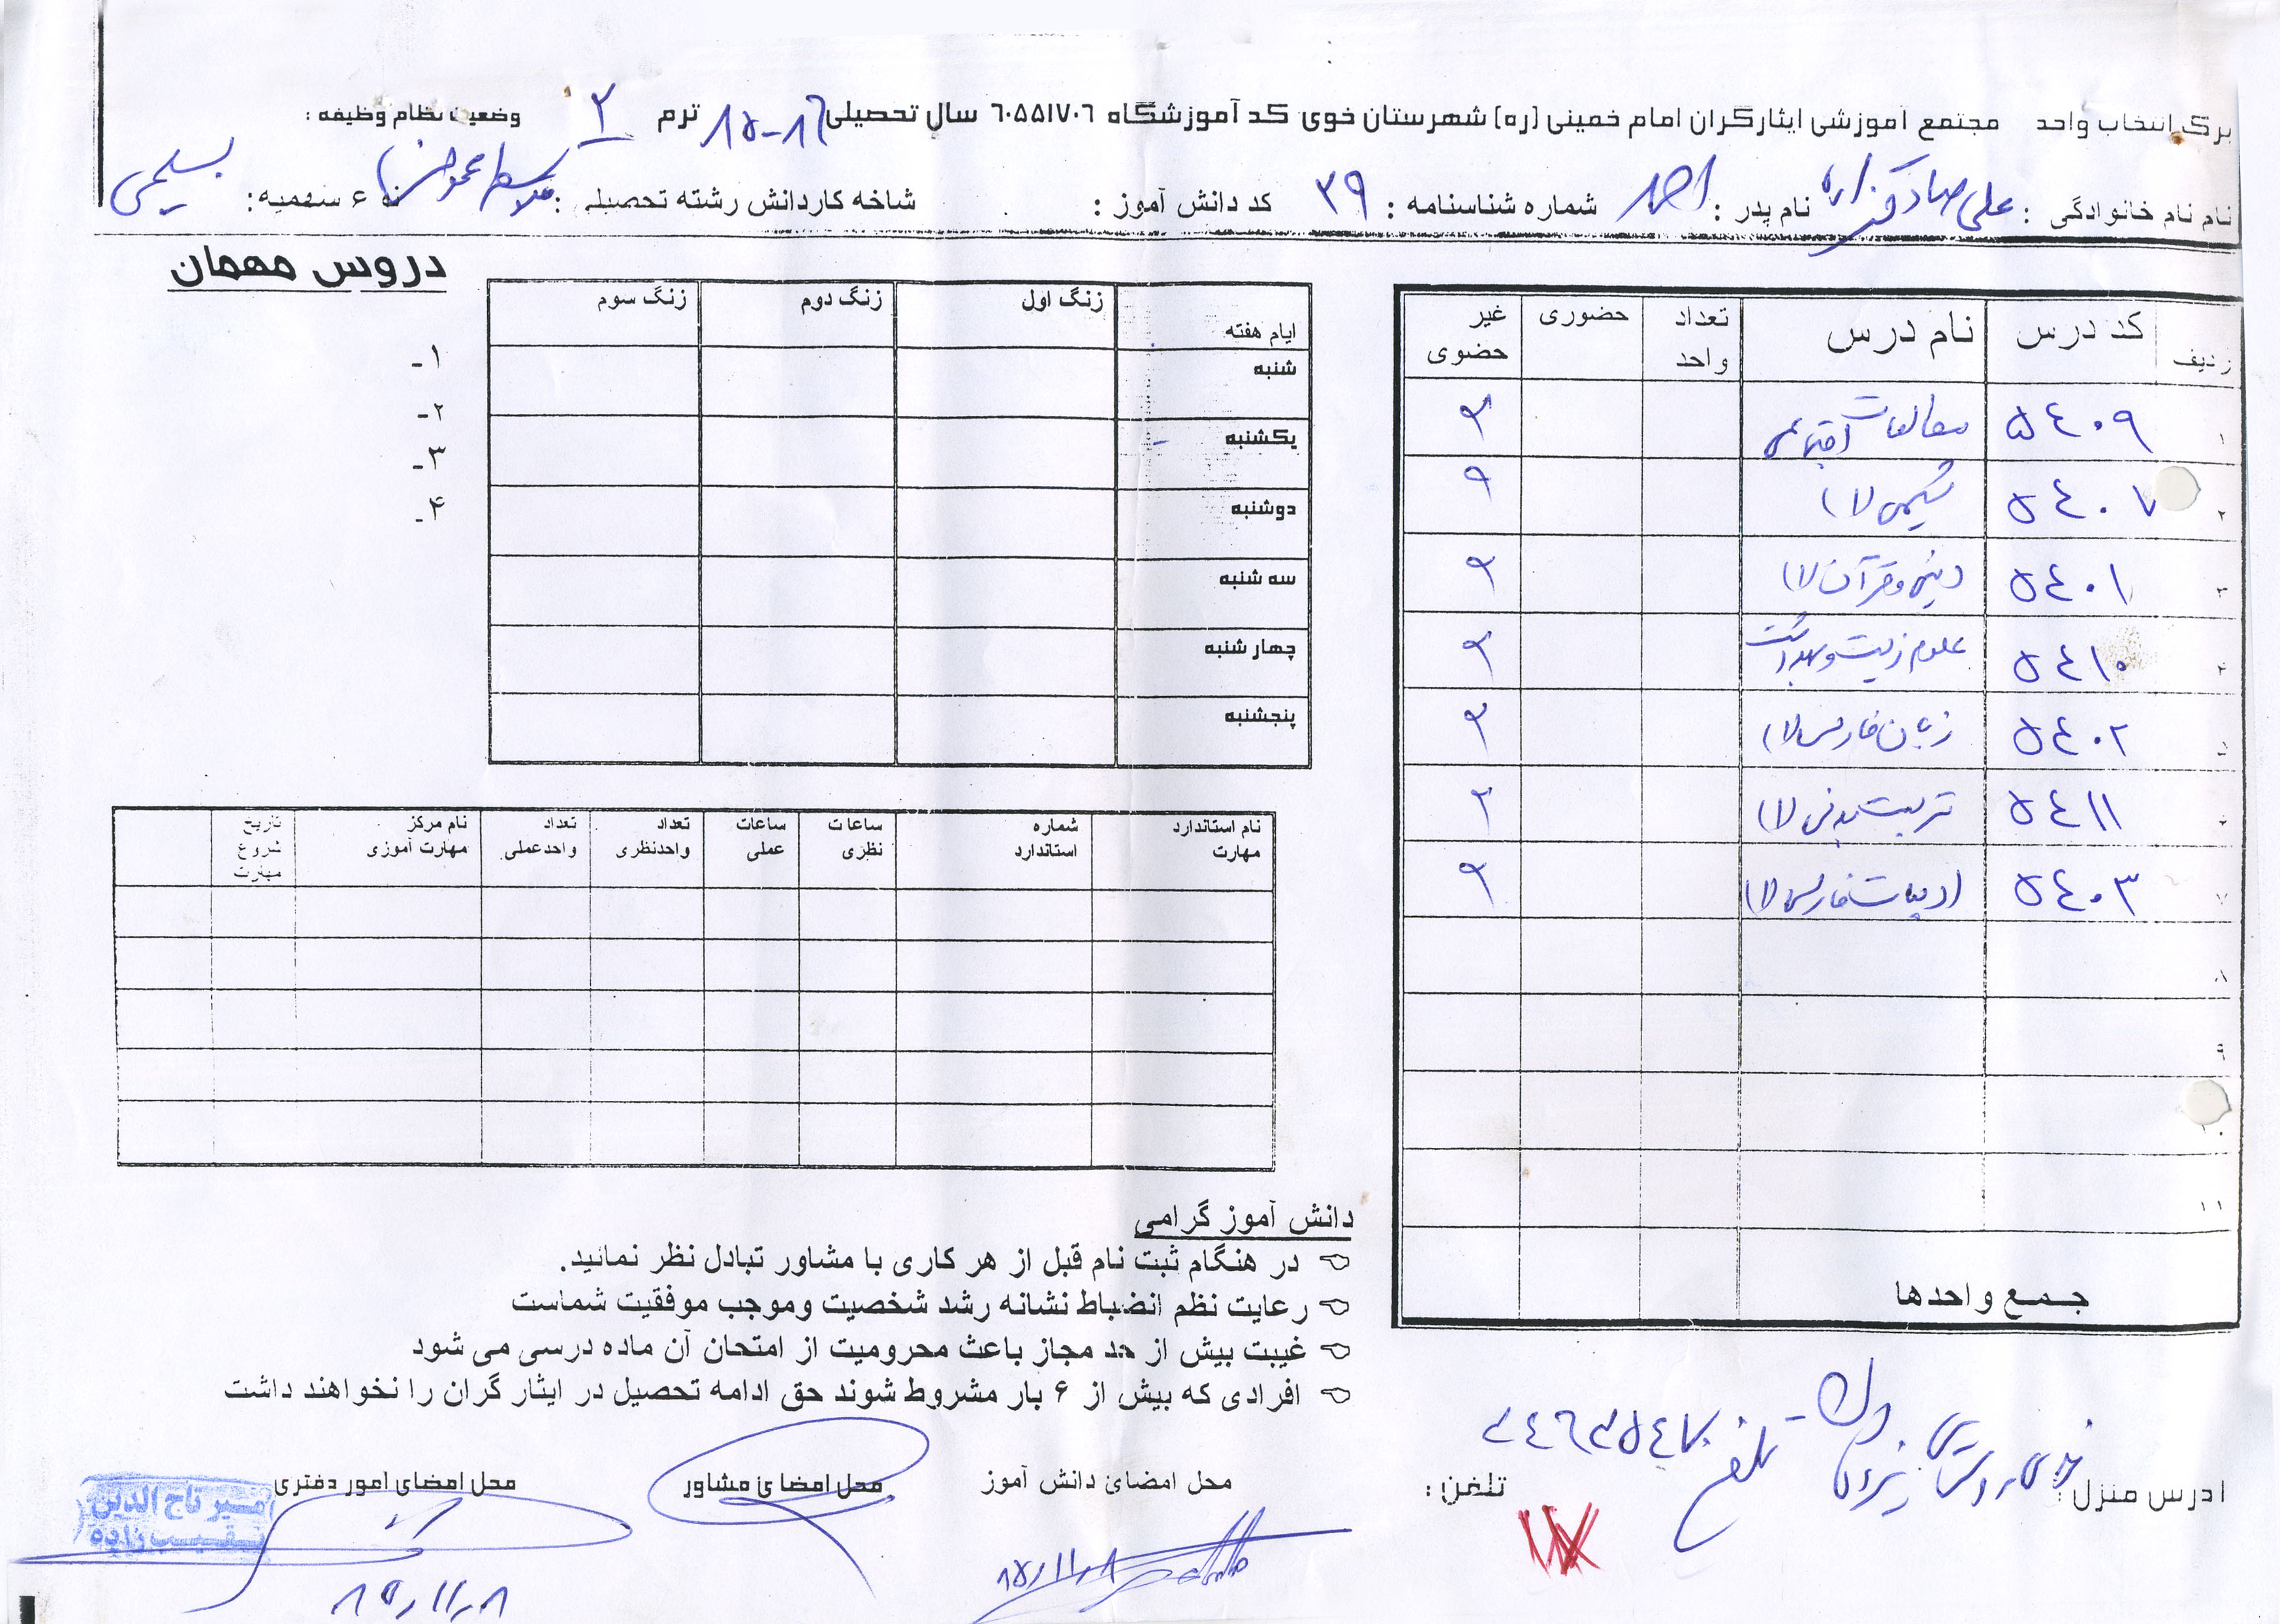 برگ انتخاب واحد مجتمع آموزشی ایثارگران امام خمینی (ره) شهرستان خوی کد آموزشگاه ۶۰۵۵۱۷۰۶ سال تحصیلی ۸۶-۸۵ ترم ۲ وضعیت نظام وظیفه :
نام نام خانوادگی : علی صادقزاده نام پدر : احمد شماره شناسنامه : ۳۹ کد دانش آموز : شاخه کاردانش رشته تحصیلی : نوع سهمیه : بسیجی
ردیف کد درس نام درس تعداد واحد حضوری غیر حضوی
۱ ۵۴۰۹ مطالعات اجتماعی ۳
۲ ۵۴۰۷ شیمی (۱) ۳
۳ ۵۴۰۱ دینی و قرآن (۱) ۳
۴ ۵۴۱۰ علوم زیست و بهداشت ۳
۵ ۵۴۰۲ زبان فارسی (۱) ۳
۶ ۵۴۱۱ تربیت بدنی (۱) ۲
۷ ۵۴۰۳ ادبیات فارسی (۱) ۳
۸
۹
۱۰
۱۱
جمع واحدها
ایام هفته زنگ اول زنگ دوم زنگ سوم
شنبه
یکشنبه
دوشنبه
سه شنبه
چهار شنبه
پنجشنبه
دروس مهمان
۱-
۲-
۳-
۴-
نام استاندارد مهارت شماره استاندارد ساعات نظری ساعات عملی تعداد واحدنظری تعداد واحدعملی نام مرکز مهارت آموزی تاریخ شروع مهارت
دانش آموز گرامی
در هنگام ثبت نام قبل از هر کاری با مشاور تبادل نظر نمائید.
رعایت نظم انضباط نشانه رشد شخصیت وموجب موفقیت شماست
غیبت بیش از حد مجاز باعث محرومیت از امتحان آن ماده درسی می شود
افرادی که بیش از ۶ بار مشروط شوند حق ادامه تحصیل در ایثار گران را نخواهند داشت
ادرس منزل : خوی روستای تلفن
تلفن :
محل امضای دانش آموز محل امضای مشاور محل امضای امور دفتری
میر تاج الدین
نقیب زاده
۸۵/۱۱/۰۸
۸۵/۱۱/۰۸